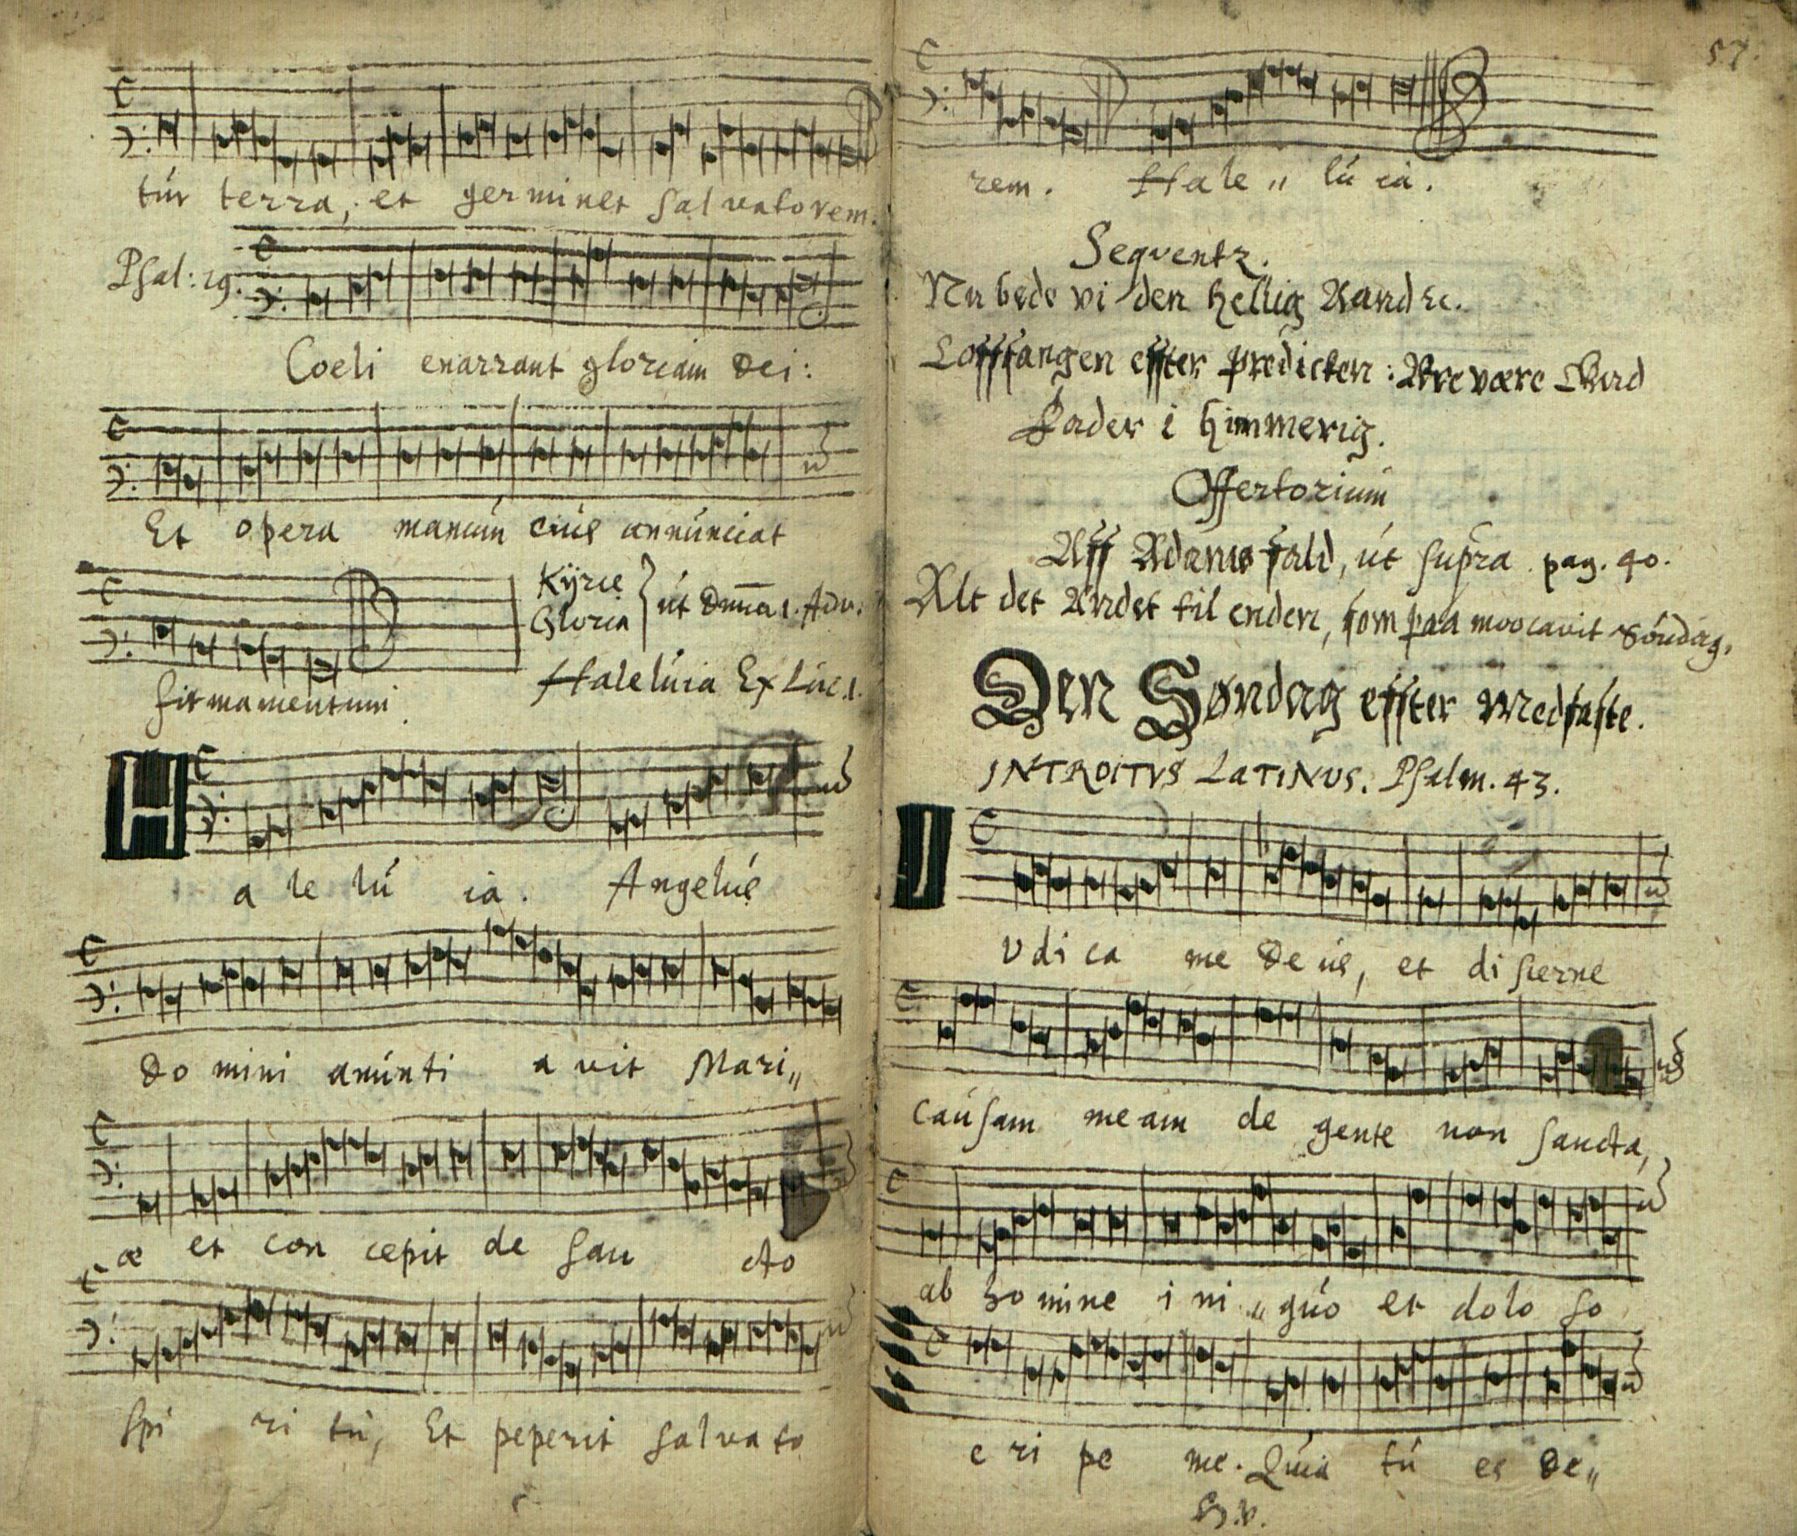 túr terra, et germinet salvatorem.
Psal: 19.
Coeli enarrant gloriam Dei:
Et opera manúm eiús annúnciat
firmamentum.
Kÿrie
Gloria
út Dnica 1. Adv.
Halelúia Ex Lúc. 1.
H
a le lú ia. Angelús
Do mini anúnti a vit Mari„
æ et con cepit de san cto
Spi ri tú, Et peperit salvato
57.
rem. Hale„ lú ia.
Seqventz.
Nu bede vi den hellig Aand ꝛc.
Loffsangen effter predicken: Ære være Gud
Fader i Himmerig.
Offertorium
Aff Adams fald, út supra pag. 40.
Alt det Andet til enden, som paa Søndag,
Den Søndag effter Medfaste.
INTROITVS LATINUS. Psalm. 43.
I
vdi ca me Deús, et discerne
Caúsam meam de gente non sancta,
ab ho mine i ni„qúo et dolo so
e ri pe me. Qúia tú es De„
H.v.